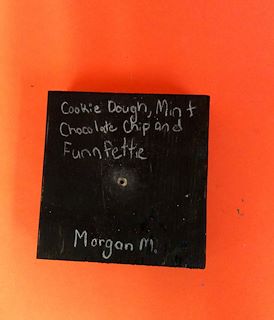 Cookie Dough, Mint
Chocolate Chip and
Funnfettie
Morgan M.